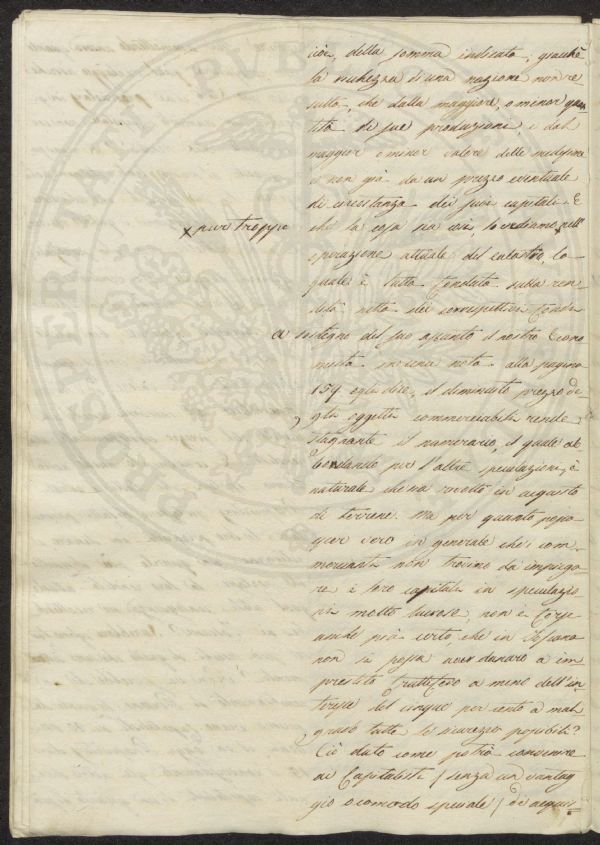 cioè, della somma indicata; giacchè
la ricchezza di una nazione non re
sulta, che dalla maggiore, o minor quan
tità di sue produzioni, e dal
maggior o minor valore delle medesime
e non già da un prezzo eventuale
di circostanza dei suoi capitali. E
che la cosa sia così, lo vediamo x nell'
x pur troppo
operazione attuale del catastro, lo
quale è tutto fondato sulla ren
dita netta dei correspettivi fondi
A sostegno del suo assunto il nostro Econo
mista in una nota alla pagina
159 egli dice, il diminuito prezzo de
gli oggetti commerciabili rende
stagnante il numerario, il quale ab
bondando per l'altre speculazioni, è
naturale che sia rivolto in acquisto
di terreni. Ma per quanto possa
esser vero in generale che i com
mercianti non trovino da impiega
re i loro capitali in speculazio
ni molto lucrose, non è forse
anche più certo che in Toscana
non si possa aver danaro a im
prestito fruttifero a meno dell'in
teresse del cinque per cento a mal
grado tutte le sicurezze possibili?
Ciò dato come potrà convenire
ai Capitalisti (senza un vantag
gio o comodo speciale) di acquis